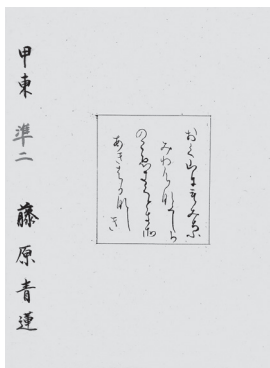 おく山にもみちふ
みわけなくしか
のこゑきくときそ
あきはかなしき
甲東 準二 藤原青蓮